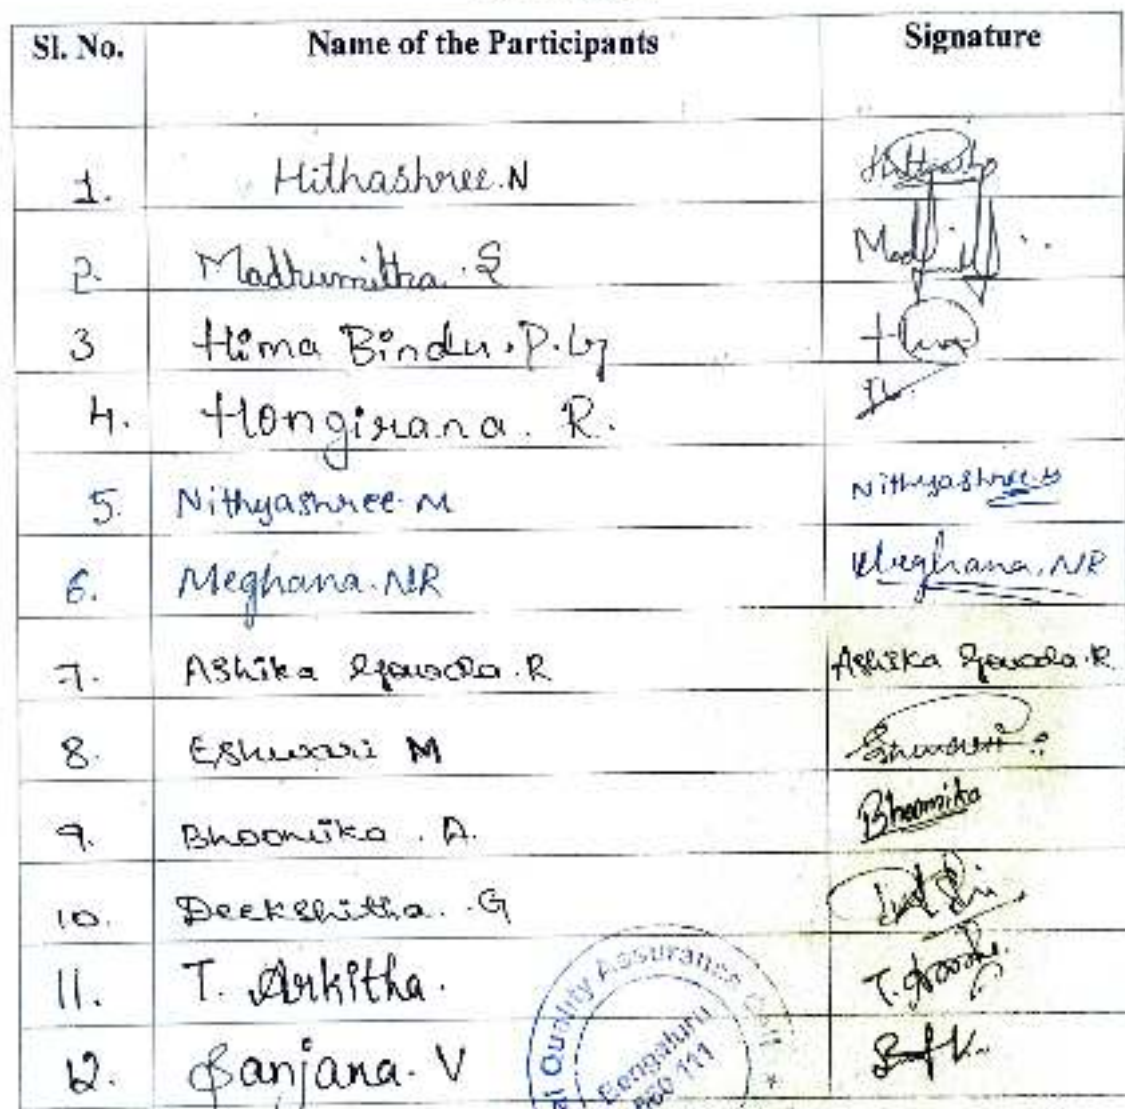 Sl. No. Name of the Participants Signature
1. Hithashree.N
2. Madhumitha. S
3 Hima Bindu.P.G
4. Hongirana. R.
5. Nithyashree.M Nithyashree.M
6. Meghana.NR Meghana.NR
7. Ashika Gowda.R Ashika Gowda.R
8. Eshwari M Eshwari
9. Bhoomika . A. Bhoomika
10. Deekshitha. G
11. T. Arkitha. T.
12. Sanjana. V
Quality Assurance Cell *
Bengaluru
560 111